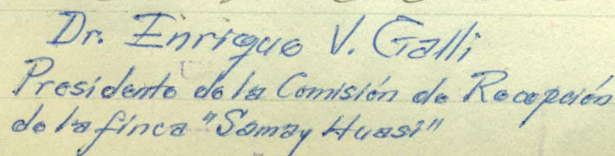 Dr. Enrique V. Galli
Presidente de la Comisión de Recepción
de la finca "Samay Huasi"